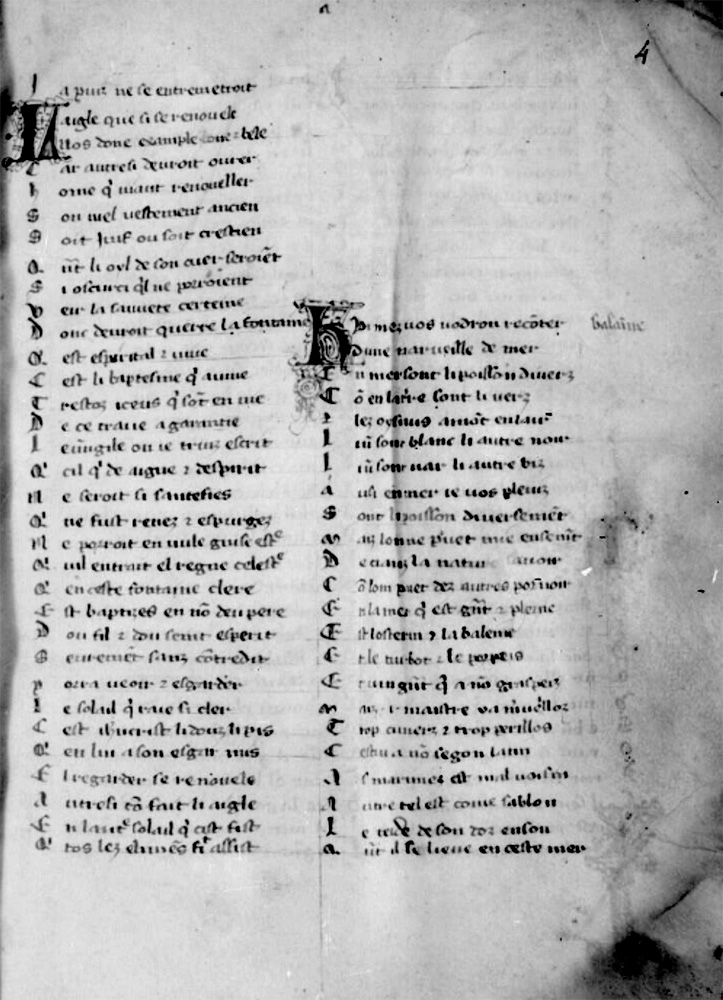 4
Ja puis ne se entremetroit
Laigle que si se renouele
Nos done example bele
Car autresi deuroit ourer
home q' uiaut renoueller
Son uiel uestement ancien
Soit Juif ou soit crestien
Qnt li oyl de son cuer seroiẽt
Si oscurci ql ne porroient
Veir la sauuete certeine
Donc deuroit querre la fontaine
Qest espirital ⁊ uiue
Cest li baptesme q'
Trestoz iceus q' sõt en uie
De ce traie a garantie
Leuãgile ou ie truis escrit
Q' cil q' de aigue ⁊ despirit
Ne seroit si saintefies
Q' ne fust netiez ⁊ espurgez
Ne porroit en nule guise estre
Quil entrast el regne celestre
Q' en ceste fontaine clere
Est baptizes en nõ deu pere
Dou fil ⁊ dou seint esperit
Seuremẽt sanz cõtredit
Porra ueoir ⁊ esgarder
Le solail q' raie si cler
Cest ihucrist li douz li pis
Q' en lui a son esgart mis
El regarder se renouele
Autresi cõ fait li aigle
En laut' solail q' cist fist
Q' tos lez elimẽs fist ⁊ assist
Hvimez uos uodron recõter balaine
Dune merueille de mer
En mer sont li poisson diuerz
Cõ en larre sont li uerz
Et lez oysiaus amõt en lair
Li ũ sont blanc li autre noir
Li ũ sont uair li autre biz
Ausi en mer ie uos pleuiz
Sont li poisson diuersemẽt
Maiz lon ne puet mie ensemẽt
De ciaus la nature sauoir
Cõ lom puet dez autres por uoir
En la mer q' est grãt ⁊ pleine
Est lesturion ⁊ la baleine
Et le turbot ⁊ le porpeis
Et un grãt q' a nõ graspeis
Maiz 1 mustre a merueilloz
Trop cuuerz ⁊ trop perillos
Cetus a nõ segon latin
As mariniez est mal uoisin
Autre tel est come sablon
Le de son doz en son
Qãt il se lieue en ceste mer